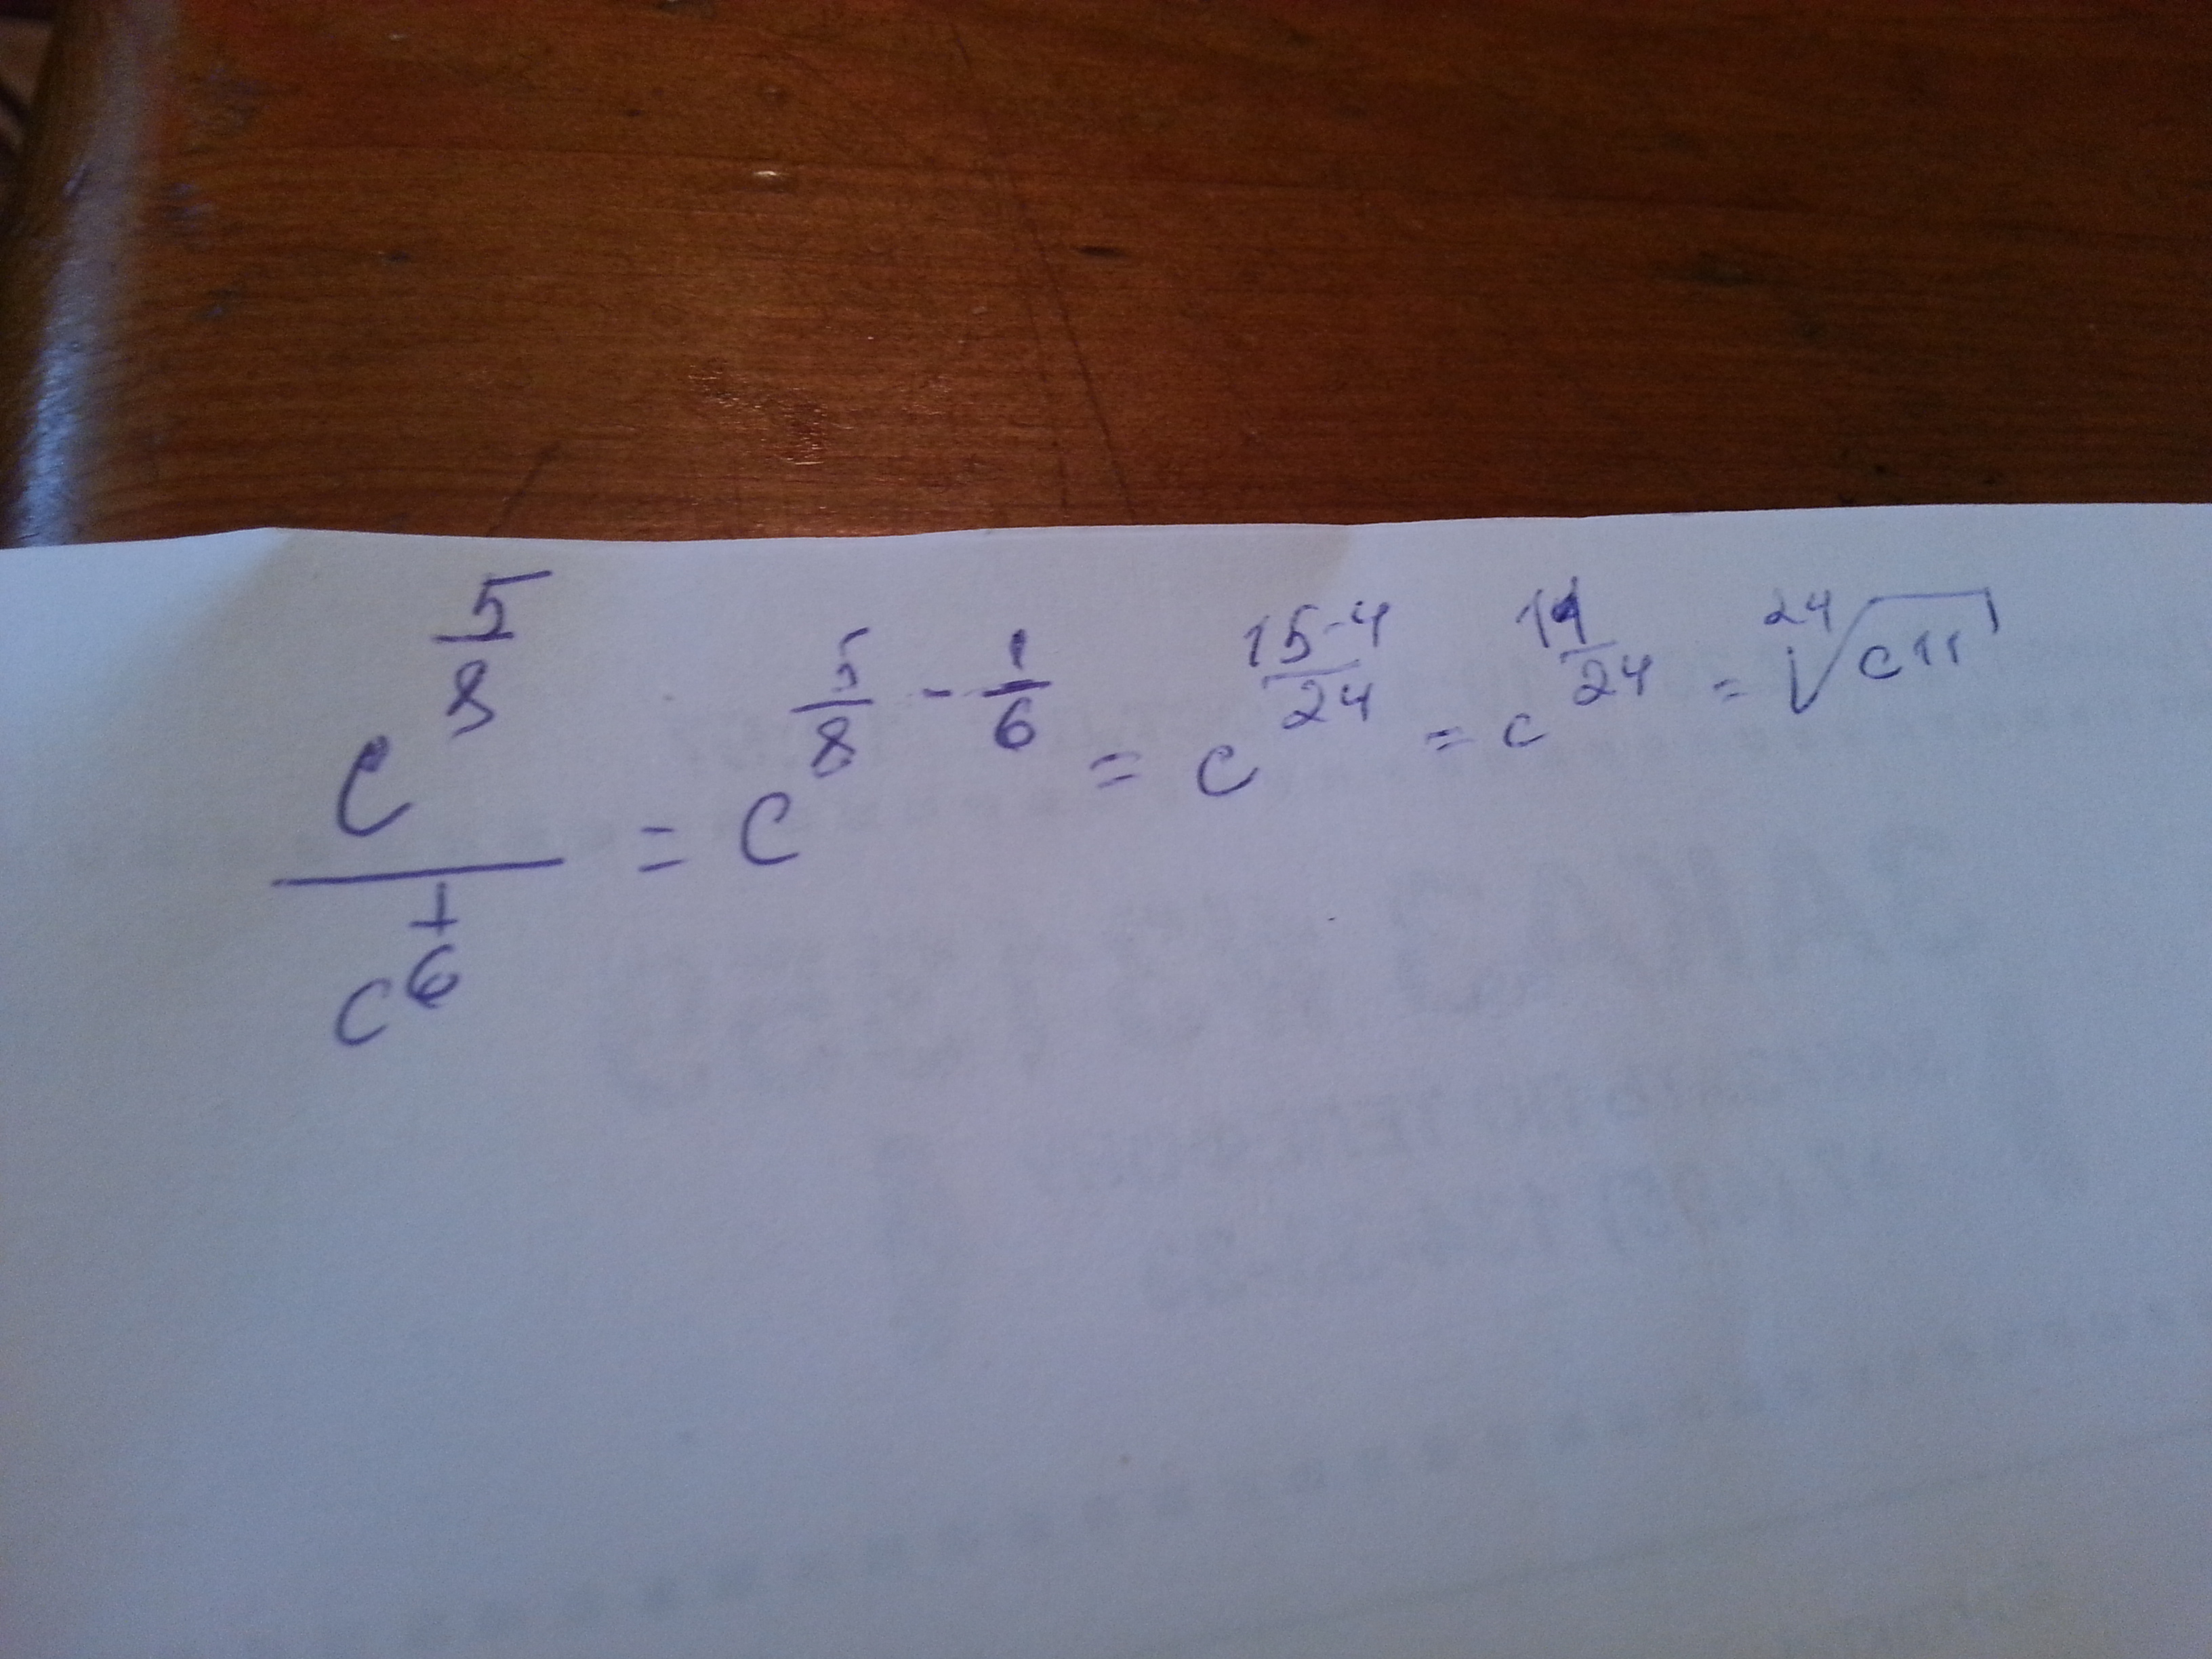 c^(5/8) / c^(1/6) = c^(5/8 - 1/6) = c^((15-4)/24) = c^(11/24) = ²⁴√(c¹¹)